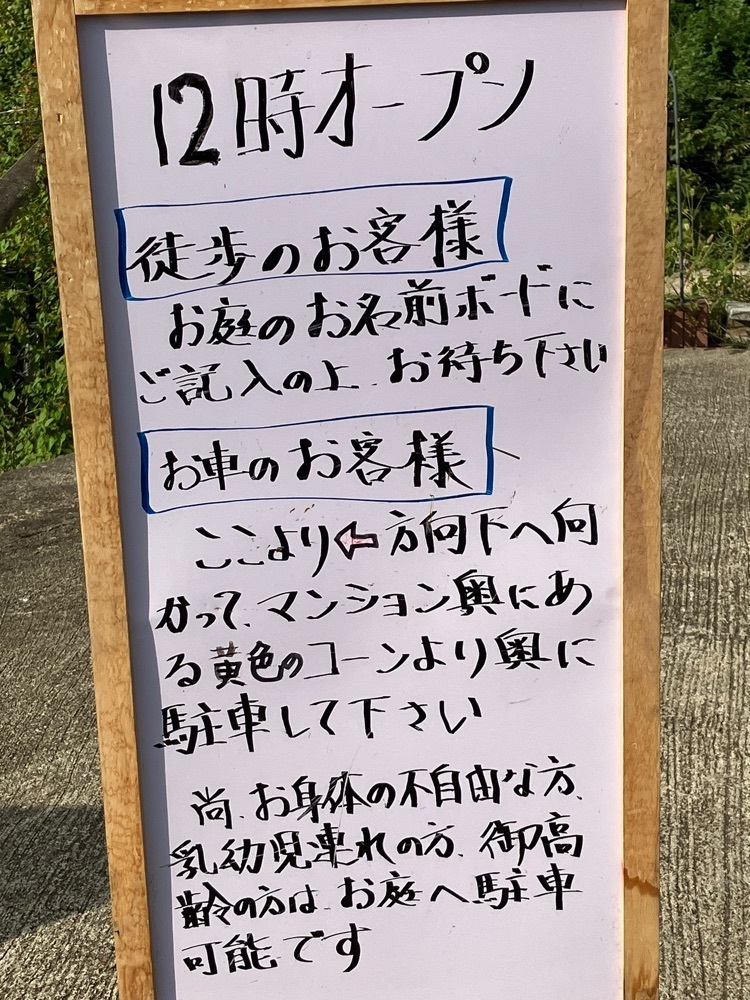 12時オープン
徒歩のお客様
お庭のお名前ボードに
ご記入の上、お待ち下さい
お車のお客様
ここより⇦方向下へ向
かって、マンション奥にあ
る黄色のコーンより奥に
駐車して下さい
尚、お身体の不自由な方、
乳幼児連れの方、御高
齢の方は、お庭へ駐車
可能です